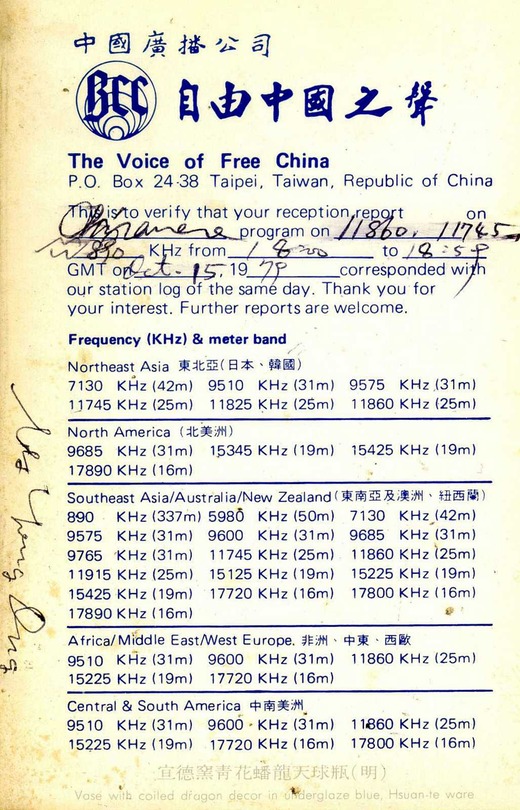 中國廣播公司
BCC 自由中國之聲
The Voice of Free China
P.O. Box 24-38 Taipei, Taiwan, Republic of China
This is to verify that your reception report on
program on 11860. 11745
890 KHz from 18:00 to 18:59
GMT on Oct. 15. 19 79 corresponded with
our station log of the same day. Thank you for
your interest. Further reports are welcome.
Frequency (KHz) & meter band
Northeast Asia 東北亞(日本、韓國)
7130 KHz (42m) 9510 KHz (31m) 9575 KHz (31m)
11745 KHz (25m) 11825 KHz (25m) 11860 KHz (25m)
North America (北美洲)
9685 KHz (31m) 15345 KHz (19m) 15425 KHz (19m)
17890 KHz (16m)
Southeast Asia/Australia/New Zealand (東南亞及澳洲、紐西蘭)
890 KHz (337m) 5980 KHz (50m) 7130 KHz (42m)
9575 KHz (31m) 9600 KHz (31m) 9685 KHz (31m)
9765 KHz (31m) 11745 KHz (25m) 11860 KHz (25m)
11915 KHz (25m) 15125 KHz (19m) 15225 KHz (19m)
15425 KHz (19m) 17720 KHz (16m) 17800 KHz (16m)
17890 KHz (16m)
Africa/Middle East/West Europe. 非洲、中東、西歐
9510 KHz (31m) 9600 KHz (31m) 11860 KHz (25m)
15225 KHz (19m) 17720 KHz (16m)
Central & South America 中南美洲
9510 KHz (31m) 9600 KHz (31m) 11860 KHz (25m)
15225 KHz (19m) 17720 KHz (16m) 17800 KHz (16m)
宣德窯青花蟠龍天球瓶(明)
Vase with coiled dragon decor in underglaze blue, Hsuan-te ware